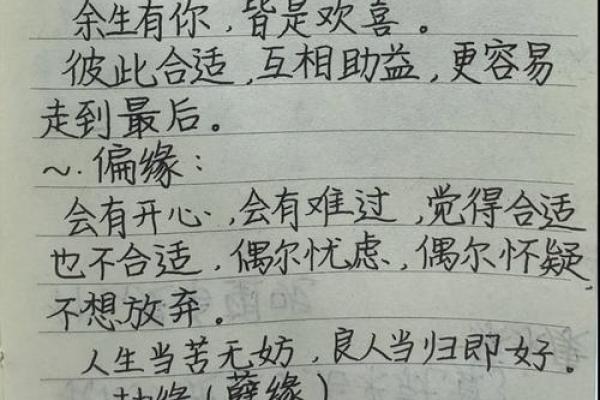 余生有你,皆是欢喜。
彼此合适,互相助益,更容易
走到最后。
~.偏缘:
会有开心,会有难过,觉得合适
也不合适,偶尔忧虑,偶尔怀疑,
不想放弃。
人生当苦无妨,良人当归即好。
缘(孽缘)